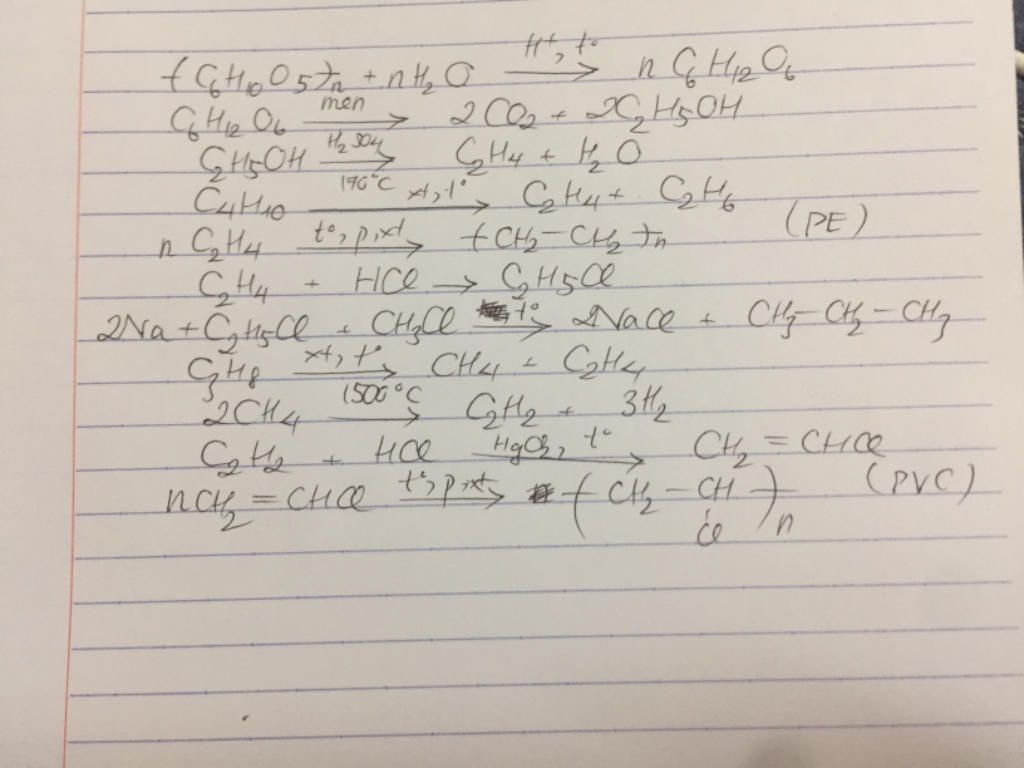 (C₆H₁₀O₅)ₙ + nH₂O —H⁺, t°→ n C₆H₁₂O₆
C₆H₁₂O₆ —men→ 2CO₂ + 2C₂H₅OH
C₂H₅OH —H₂SO₄, 170°C→ C₂H₄ + H₂O
C₄H₁₀ —xt, t°→ C₂H₄ + C₂H₆
n C₂H₄ —t°, p, xt→ (CH₂-CH₂)ₙ (PE)
C₂H₄ + HCl → C₂H₅Cl
2Na + C₂H₅Cl + CH₃Cl —, t°→ 2NaCl + CH₃-CH₂-CH₃
C₃H₈ —xt, t°→ CH₄ + C₂H₄
2CH₄ —1500°C→ C₂H₂ + 3H₂
C₂H₂ + HCl —HgCl₂, t°→ CH₂ = CHCl
nCH₂ = CHCl —t°, p, xt→ (CH₂ - CH)ₙ (PVC)
Cl